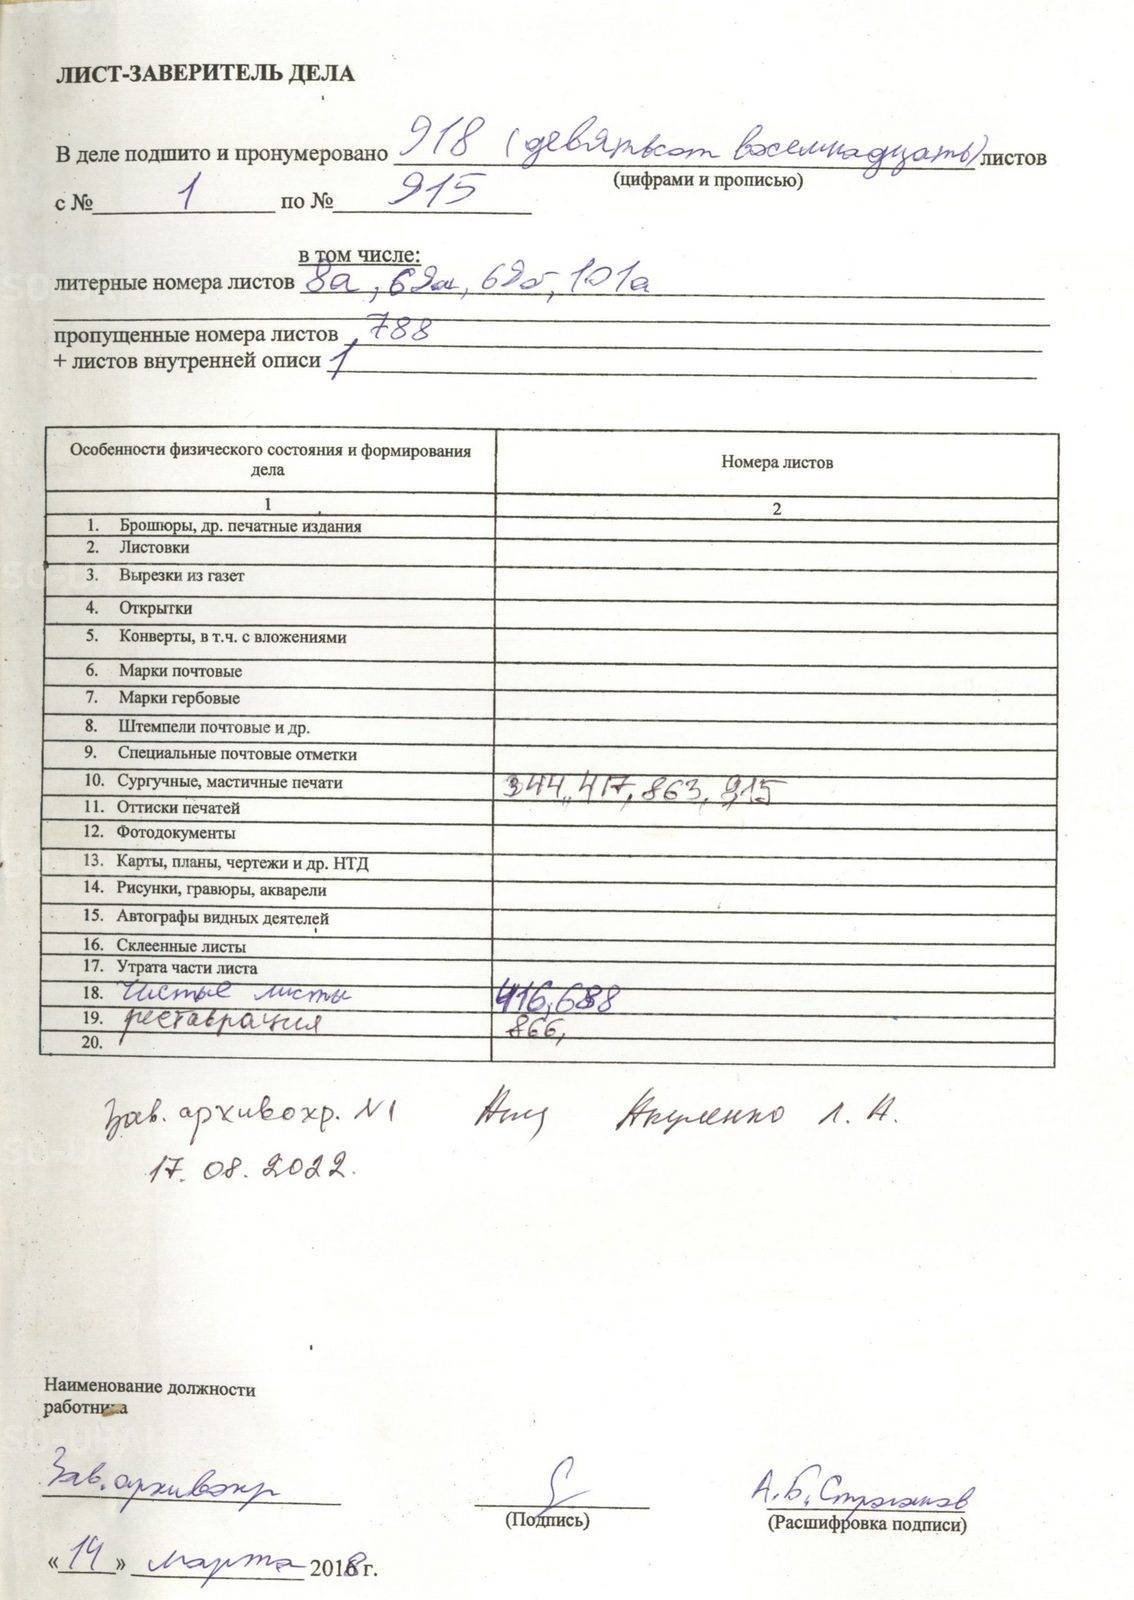 ЛИСТ-ЗАВЕРИТЕЛЬ ДЕЛА
В деле подшито и пронумеровано 918 (девятьсот восемнадцать) листов
(цифрами и прописью)
с № 1 по № 915
в том числе:
литерные номера листов 8а, 62а, 62б, 101а
пропущенные номера листов 788
+ листов внутренней описи 1
Особенности физического состояния и формирования дела Номера листов
1 2
1. Брошюры, др. печатные издания
2. Листовки
3. Вырезки из газет
4. Открытки
5. Конверты, в т.ч. с вложениями
6. Марки почтовые
7. Марки гербовые
8. Штемпели почтовые и др.
9. Специальные почтовые отметки
10. Сургучные, мастичные печати 344, 417, 863, 915
11. Оттиски печатей
12. Фотодокументы
13. Карты, планы, чертежи и др. НТД
14. Рисунки, гравюры, акварели
15. Автографы видных деятелей
16. Склеенные листы
17. Утрата части листа
18. Чистые листы 416, 688
19. реставрация 866,
20.
Зав. архивохр. №1 Якуленко Л. Н.
17.08.2022.
Наименование должности
работника
Зав. архивохр А.Б. Строганов
(Подпись) (Расшифровка подписи)
«14» марта 2018 г.